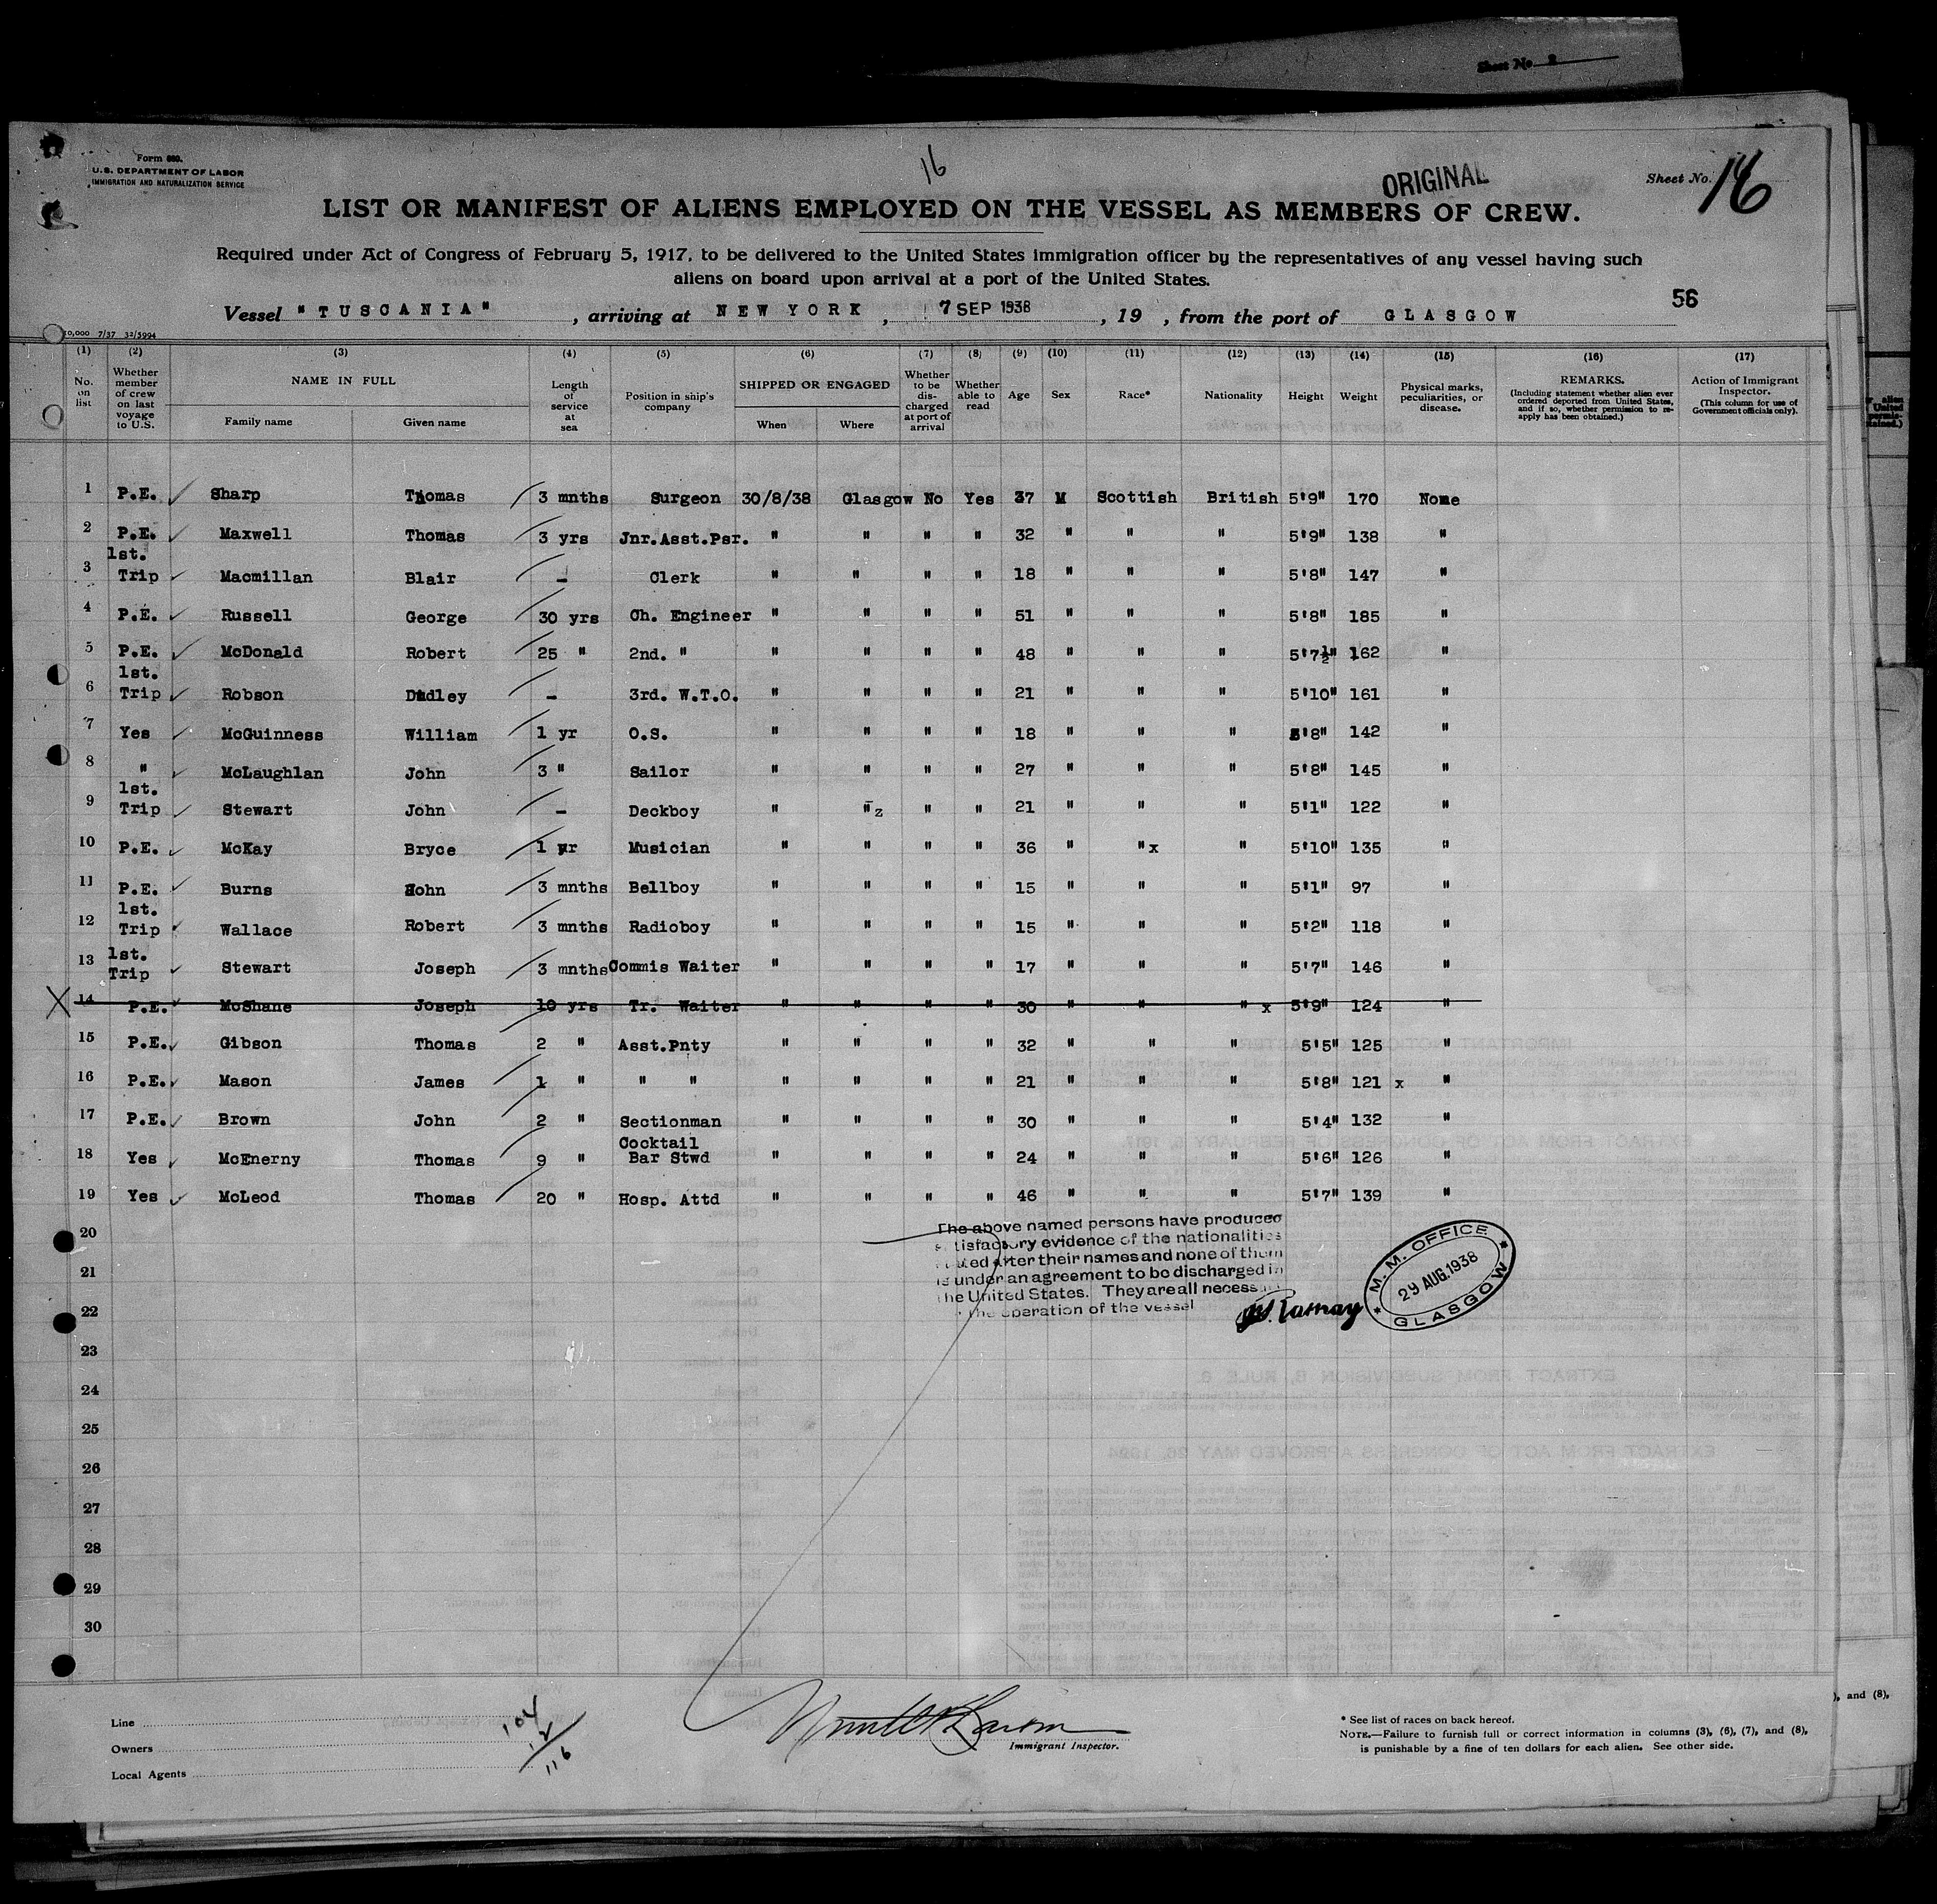 Sheet No. 2
Form 680.
U.S. DEPARTMENT OF LABOR
IMMIGRATION AND NATURALIZATION SERVICE
16
ORIGINAL
Sheet No. 16
LIST OR MANIFEST OF ALIENS EMPLOYED ON THE VESSEL AS MEMBERS OF CREW.
Required under Act of Congress of February 5, 1917, to be delivered to the United States immigration officer by the representatives of any vessel having such
aliens on board upon arrival at a port of the United States.
56
Vessel "TUSCANIA", arriving at NEW YORK, 7 SEP 1938, 19 , from the port of GLASGOW
0,000 7/37 32/5994
(1) (2) (3) (4) (5) (6) (7) (8) (9) (10) (11) (12) (13) (14) (15) (16) (17)
No. on list
Whether member of crew on last voyage to U.S.
NAME IN FULL
Family name
Given name
Length of service at sea
Position in ship's company
SHIPPED OR ENGAGED
When
Where
Whether to be dis-charged at port of arrival
Whether able to read
Age
Sex
Race*
Nationality
Height
Weight
Physical marks, peculiarities, or disease.
REMARKS.
(Including statement whether alien ever ordered deported from United States, and if so, whether permission to re-apply has been obtained.)
Action of Immigrant Inspector.
(This column for use of Government officials only).
1 P.E. ✓ Sharp Thomas 3 mnths Surgeon 30/8/38 Glasgow No Yes 37 M Scottish British 5'9" 170 None
2 P.E. ✓ Maxwell Thomas 3 yrs Jnr.Asst.Psr. " " " " 32 " " " 5'9" 138 "
3 1st. Trip ✓ Macmillan Blair - Clerk " " " " 18 " " " 5'8" 147 "
4 P.E. ✓ Russell George 30 yrs Ch. Engineer " " " " 51 " " " 5'8" 185 "
5 P.E. ✓ McDonald Robert 25 " 2nd. " " " " " 48 " " " 5'7½" 162 "
6 1st. Trip ✓ Robson Dudley - 3rd. W.T.O. " " " " 21 " " " 5'10" 161 "
7 Yes ✓ McGuinness William 1 yr O.S. " " " " 18 " " " 5'8" 142 "
8 " ✓ McLaughlan John 3 " Sailor " " " " 27 " " " 5'8" 145 "
9 1st. Trip ✓ Stewart John - Deckboy " "z " " 21 " " " 5'1" 122 "
10 P.E. ✓ McKay Bryce 1 yr Musician " " " " 36 " "x " 5'10" 135 "
11 P.E. ✓ Burns John 3 mnths Bellboy " " " " 15 " " " 5'1" 97 "
12 1st. Trip ✓ Wallace Robert 3 mnths Radioboy " " " " 15 " " " 5'2" 118 "
13 1st. Trip ✓ Stewart Joseph 3 mnths Commis Waiter " " " " 17 " " " 5'7" 146 "
X 14 P.E. ✓ McShane Joseph 10 yrs Tr. Waiter " " " " 30 " " " x 5'9" 124 "
15 P.E. ✓ Gibson Thomas 2 " Asst.Pnty " " " " 32 " " " 5'5" 125 "
16 P.E. ✓ Mason James 1 " " " " " " " 21 " " " 5'8" 121 x "
17 P.E. ✓ Brown John 2 " Sectionman " " " " 30 " " " 5'4" 132 "
18 Yes ✓ McEnerny Thomas 9 " Cocktail Bar Stwd " " " " 24 " " " 5'6" 126 "
19 Yes ✓ McLeod Thomas 20 " Hosp. Attd " " " " 46 " " " 5'7" 139 "
20
21
22
23
24
25
26
27
28
29
30
The above named persons have produced
satisfactory evidence of the nationalities
stated after their names and none of them
is under an agreement to be discharged in
the United States. They are all necess
the operation of the vessel
M. M. OFFICE
29 AUG.1938
GLASGOW
Line
Owners
Local Agents
104
12
116
Immigrant Inspector.
* See list of races on back hereof.
NOTE.—Failure to furnish full or correct information in columns (3), (6), (7), and (8),
is punishable by a fine of ten dollars for each alien. See other side.
), and (8),